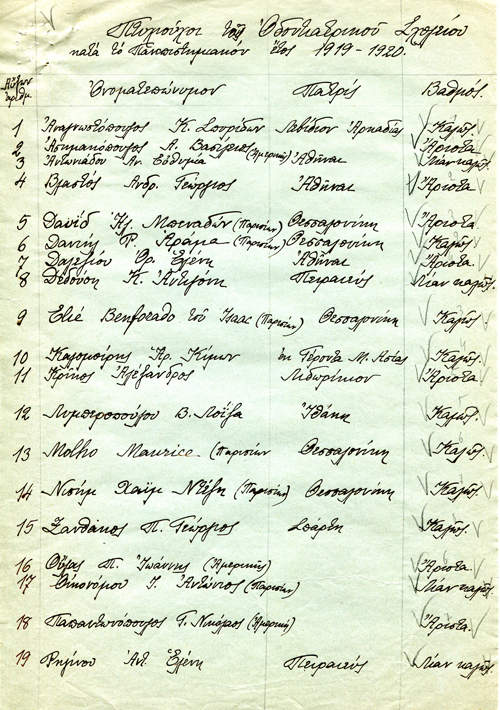 Πτυχιοῦχοι τοῦ Ὀδοντιατρικοῦ Σχολείου
κατὰ τὸ Πανεπιστημιακὸν ἔτος 1919-1920.
Αὔξων ἀριθμ. Ὀνοματεπώνυμον Πατρίς Βαθμός.
1 Ἀναγνωστόπουλος Κ. Σπυρίδων Λεβίδιον Ἀρκαδίας Καλῶς.
2 Ἀσημακόπουλος Λ. Βασίλειος (Ἀμερικῆς) Ἄριστα
3 Ἀντωνιάδου Ἀν. Εὐθυμία Ἀθῆναι Λίαν καλῶς.
4 Βλαστὸς Ἀνδρ. Γεώργιος Ἀθῆναι Ἄριστα
5 Δαυίδ Μπεναδὼν (Παρισίων) Θεσσαλονίκη Ἄριστα
6 (Παρισίων) Θεσσαλονίκη Καλῶς
7 Ἑλένη Ἀθῆναι Ἄριστα.
8 Δεδούση Κ. Ἀντιγόνη Πειραιεύς Λίαν καλῶς.
9 Elié Benforado τοῦ Isaac (Παρισίων) Θεσσαλονίκη Καλῶς.
10 Καλομοίρης Κίμων ἐκ Γέροντα Μ. Ἀσίας Καλῶς.
11 Κρίκος Ἀλέξανδρος Λιδωρίκιον Ἄριστα.
12 Λυμπεροπούλου Β. Λουΐζα Ἰθάκη Καλῶς.
13 Molho Maurice (Παρισίων Θεσσαλονίκη Καλῶς.
14 Νισὴμ Χαΐμ (Παρισίων) Θεσσαλονίκη Καλῶς.
15 Ξανθάκος Π. Γεώργιος Σπάρτη Καλῶς.
16 Π. Ἰωάννης (Ἀμερικῆς) Ἄριστα.
17 Οἰκονόμου Ἰ. Ἀντώνιος (Παρισίων) Λίαν καλῶς.
18 Παπαντωνόπουλος Γ. Νικόλαος (Ἀμερικῆς) Ἄριστα.
19 Ρηγίνου Ἀντ. Ἑλένη Πειραιεύς Λίαν καλῶς.